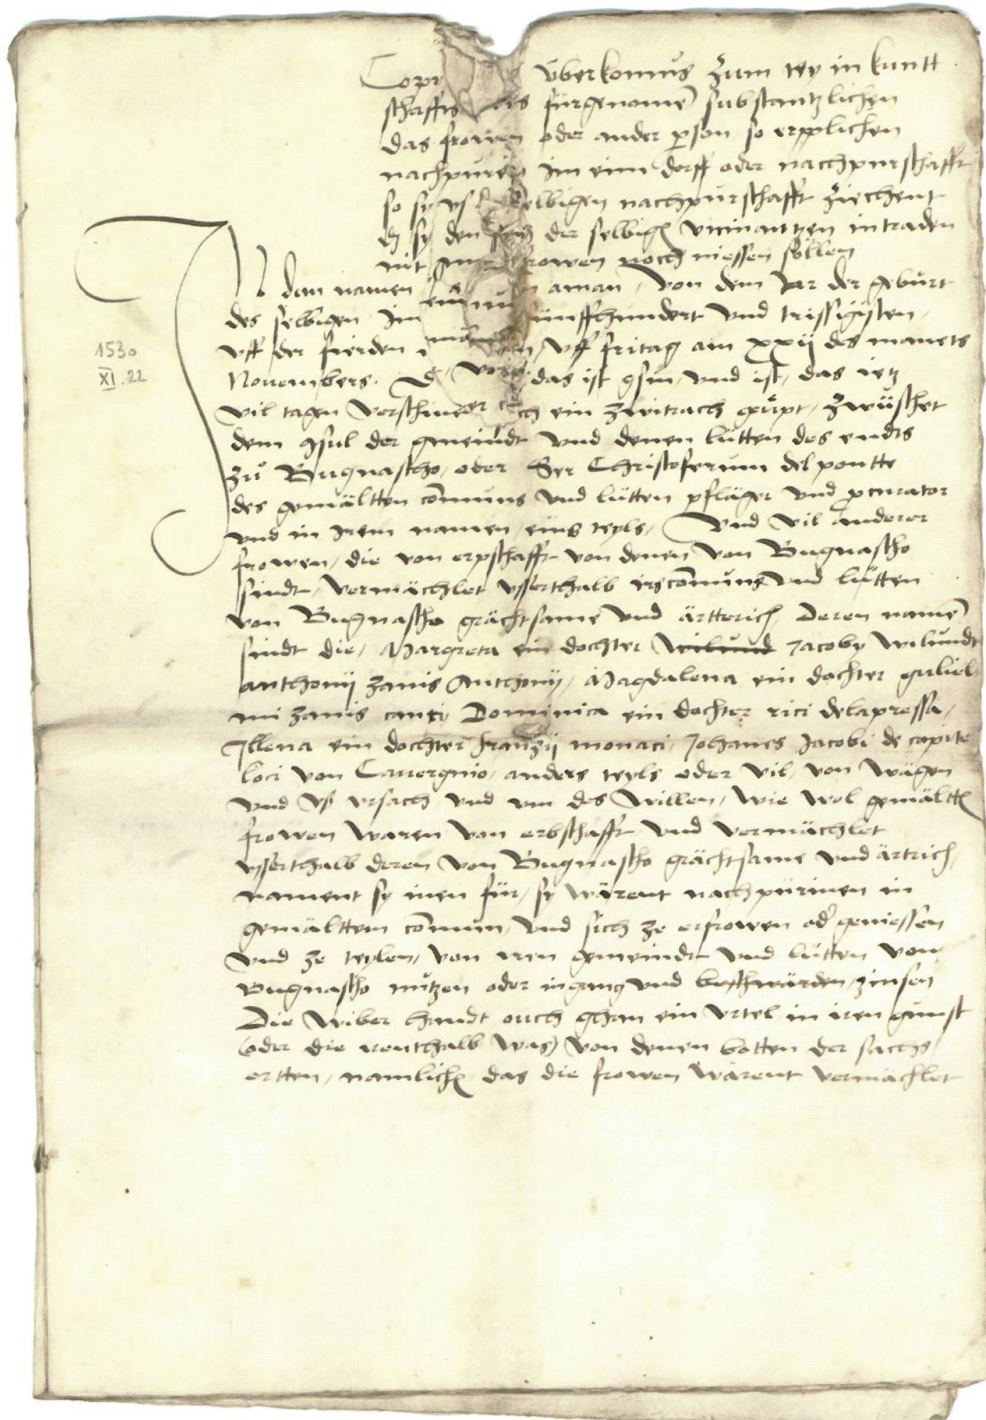 Copy überkomnus zum tey in kuntt
schafft des fürgenomē substantzlichen
das frowen oder ander pson so erpplichen
nachpurin im eim dorff oder nacchpurschafft
so sy us selbigen nachpurschafft ziechent
dz sy den der selbigē vicinantzen intraden
nit frowen noch niessen söllen
In dem namen aman, von dem Jar der geburt
des selbigen, Im fünffhundert und trissigisten,
uff der fierden uff fritag am xxij des manets
Novembers. das ist gsin, und ist, das ietz
vil tagen verschinen ein zwitrach gyept, zwüschet
dem gsul der gmeindt und denen lütten des endts
zů Bugnascho, oder Ser Christoferum del pontte
des gemältten cōmuns und lütten pfläger und procurator
und in Irem namen, eins teyls, Und vil anderer
frowen, die von erpschafft von denen von Bugnascho
sindt, vermächlet usserthalb irs cōmuns und lütten
von Bugnascho grächtsame und ärtterich, deren namē
sindt die, Margreta ein dochter Jacoby wilundt
Anthonij zanis Anthonij, Magdalena ein dochter guliel
mi zanis canti, Dominica ein dochter rici delapressa,
Illena ein dochter franzij monaci, Johanes Jacobi de capite
loci von Cavergnio, anders teyls oder vil, von wägen
und us ursach und um des willen, wie wol gemältē
frowen waren von erbschafft und vermächlet
usserthalb deren von Bugnascho grächtsame und ärtrich,
nament sy inen für, sy wärent nachpürinen in
gemälttem cōmun, und sich ze erfrowen oder geniessen
und ze teylen, von irem gemeindt und lütten von
Bugnascho nützen oder ingang und beschwärden, zinsen
Die wiber handt ouch ghan ein urtel in iren gunst
(oder die irenthalb was) von denen botten der sächs
ortten, namlichē das die frowen wärent vermächlet
1530
XI.22